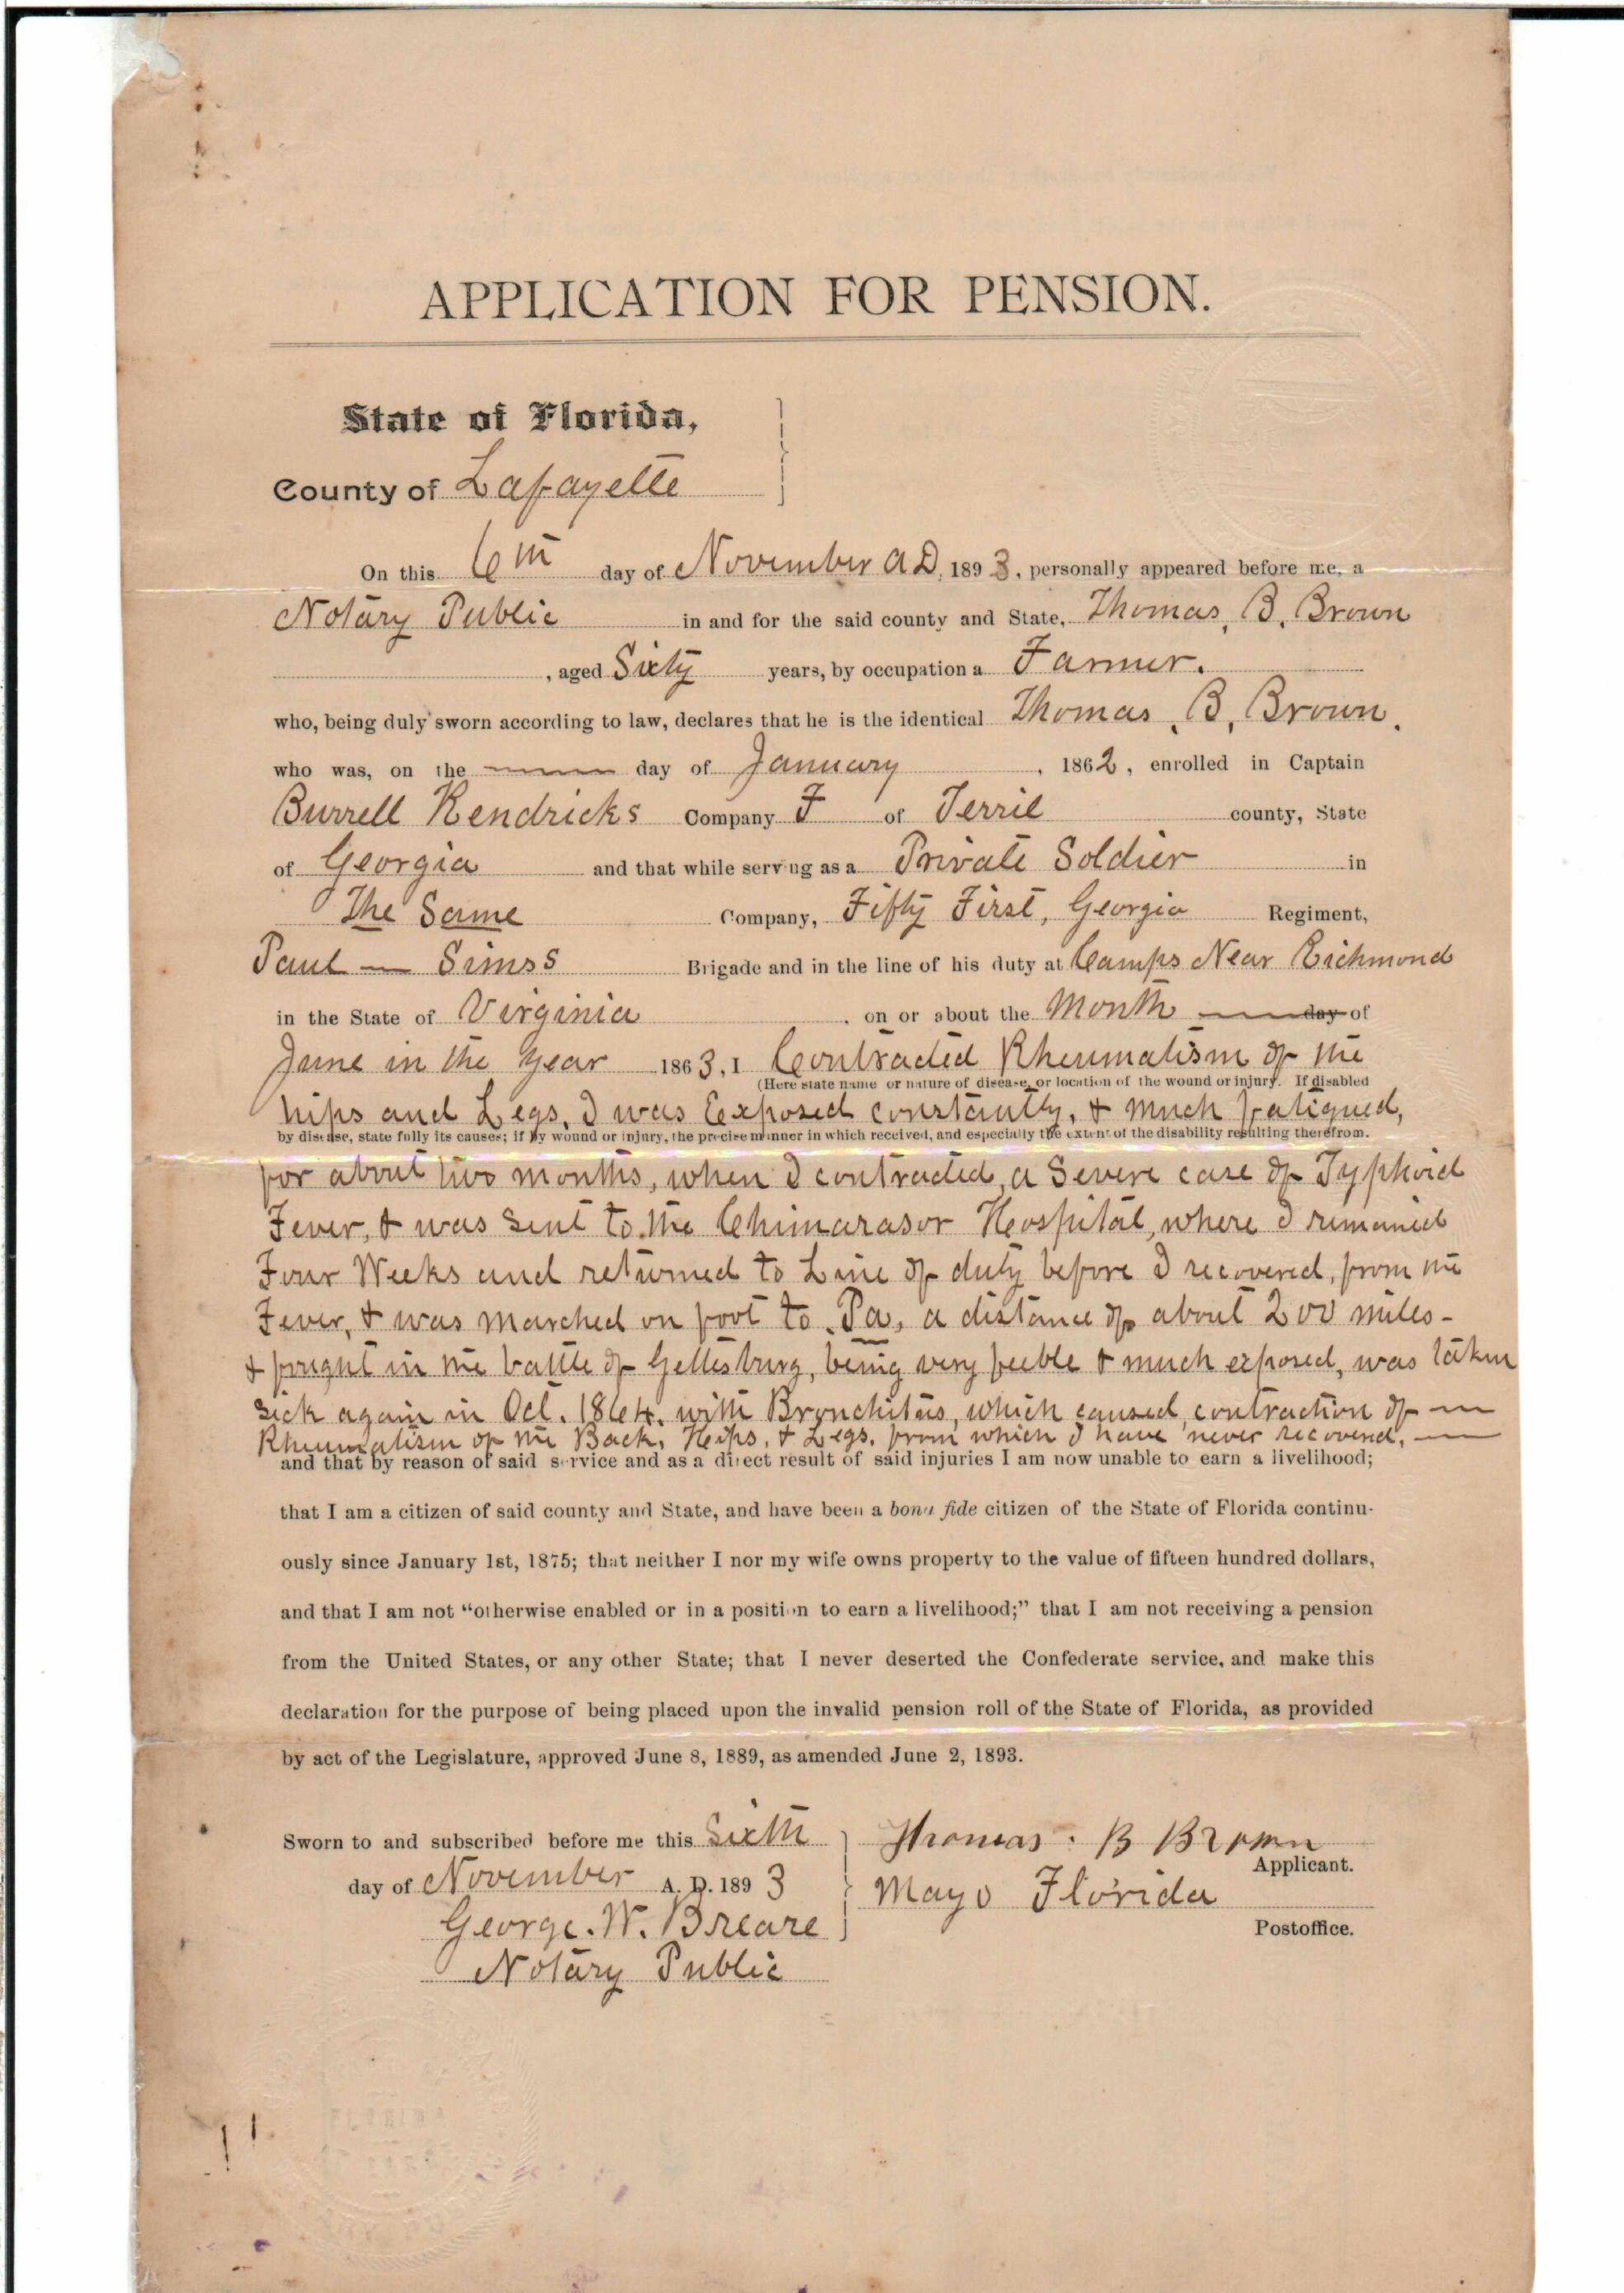 APPLICATION FOR PENSION.
State of Florida,
County of Lafayette
On this 6th day of November A D, 1893, personally appeared before me, a
Notary Public in and for the said county and State, Thomas, B. Brown
, aged Sixty years, by occupation a Farmer.
who, being duly sworn according to law, declares that he is the identical Thomas, B, Brown.
who was, on the — day of January, 1862, enrolled in Captain
Burrell Kendricks Company F of Terril county, State
of Georgia and that while serving as a Private Soldier in
The Same Company, Fifty First, Georgia Regiment,
Paul — Simss Brigade and in the line of his duty at Camps Near Richmond
in the State of Virginia, on or about the Month — day of
June in the year 1863, I Contracted Rheumatism of the
(Here state name or nature of disease, or location of the wound or injury. If disabled
hips and Legs, I was Exposed constantly, & much fatigued,
by disease, state fully its causes; if by wound or injury, the precise manner in which received, and especially the extent of the disability resulting therefrom.
for about two months, when I contracted, a Severe case of Typhoid
Fever, & was sent to the Chimarasor Hospital, where I remained
Four Weeks and returned to Line of duty before I recovered, from the
Fever, & was marched on foot to Pa, a distance of about 200 miles -
& fought in the battle of Gettesburg, being very feeble & much exposed, was taken
sick again in Oct. 1864. with Bronchitus, which caused contraction of —
Rheumatism of the Back, Hips, & Legs, from which I have never recovered, —
and that by reason of said service and as a direct result of said injuries I am now unable to earn a livelihood;
that I am a citizen of said county and State, and have been a bona fide citizen of the State of Florida continu-
ously since January 1st, 1875; that neither I nor my wife owns property to the value of fifteen hundred dollars,
and that I am not “otherwise enabled or in a position to earn a livelihood;” that I am not receiving a pension
from the United States, or any other State; that I never deserted the Confederate service, and make this
declaration for the purpose of being placed upon the invalid pension roll of the State of Florida, as provided
by act of the Legislature, approved June 8, 1889, as amended June 2, 1893.
Sworn to and subscribed before me this Sixth
day of November A. D. 1893
George. W. Breare
Notary Public
Thomas. B Brown
Applicant.
Mayo Florida
Postoffice.